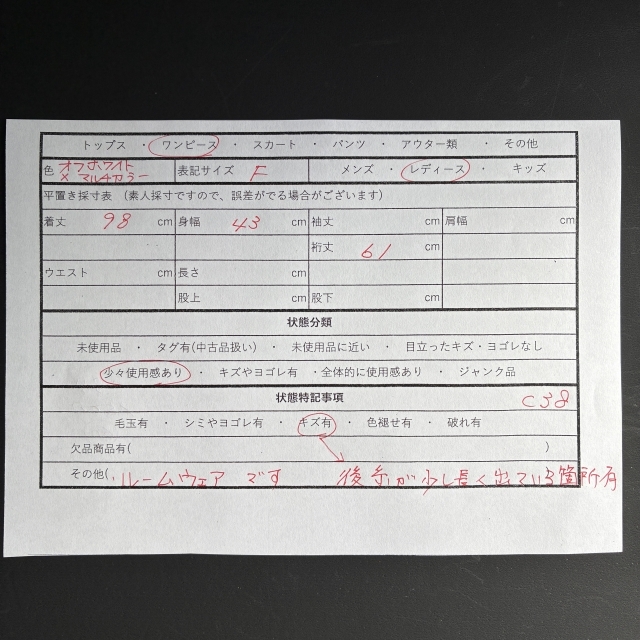 トップス ・ ワンピース ・ スカート ・ パンツ ・ アウター類 ・ その他
色 オフホワイト × マルチカラー 表記サイズ F メンズ ・ レディース ・ キッズ
平置き採寸表 (素人採寸ですので、誤差がでる場合がございます)
着丈 98 cm 身幅 43 cm 袖丈 cm 肩幅 cm
裄丈 61 cm
ウエスト cm 長さ cm
股上 cm 股下 cm
状態分類
未使用品 ・ タグ有(中古品扱い) ・ 未使用品に近い ・ 目立ったキズ・ヨゴレなし
少々使用感あり ・ キズやヨゴレ有 ・全体的に使用感あり ・ ジャンク品
状態特記事項 C38
毛玉有 ・ シミやヨゴレ有 ・ キズ有 ・ 色褪せ有 ・ 破れ有
欠品商品有( )
その他( ルームウェア です 後糸が少し長く出ている箇所有